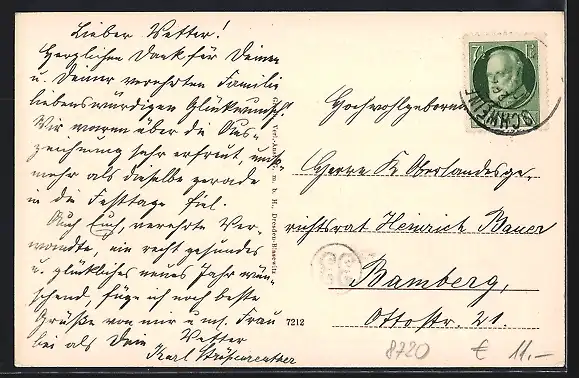 Lieber Vetter!
Herzlichen Dank für Deinen
u. Deiner verehrten Familie
liebenswürdigen Glückwunsch!
Wir waren über die Aus-
zeichnung sehr erfreut, umso-
mehr als dieselbe gerade
in die Festtage fiel.
Auch Euch, verehrte Ver-
wandte, ein recht gesundes
u. glückliches neues Jahr wün-
schend, füge ich noch beste
Grüße von mir u. m. Frau
bei als Dein Vetter
Karl
Verl.-Anst. m. b. H., Dresden-Blasewitz
7212
7½
SCHWEINF
Hochwohlgeboren
Herrn K. Oberlandesge-
richtsrat Heinrich Bauer
Bamberg,
Ottostr. 21.
8720 € 11.-